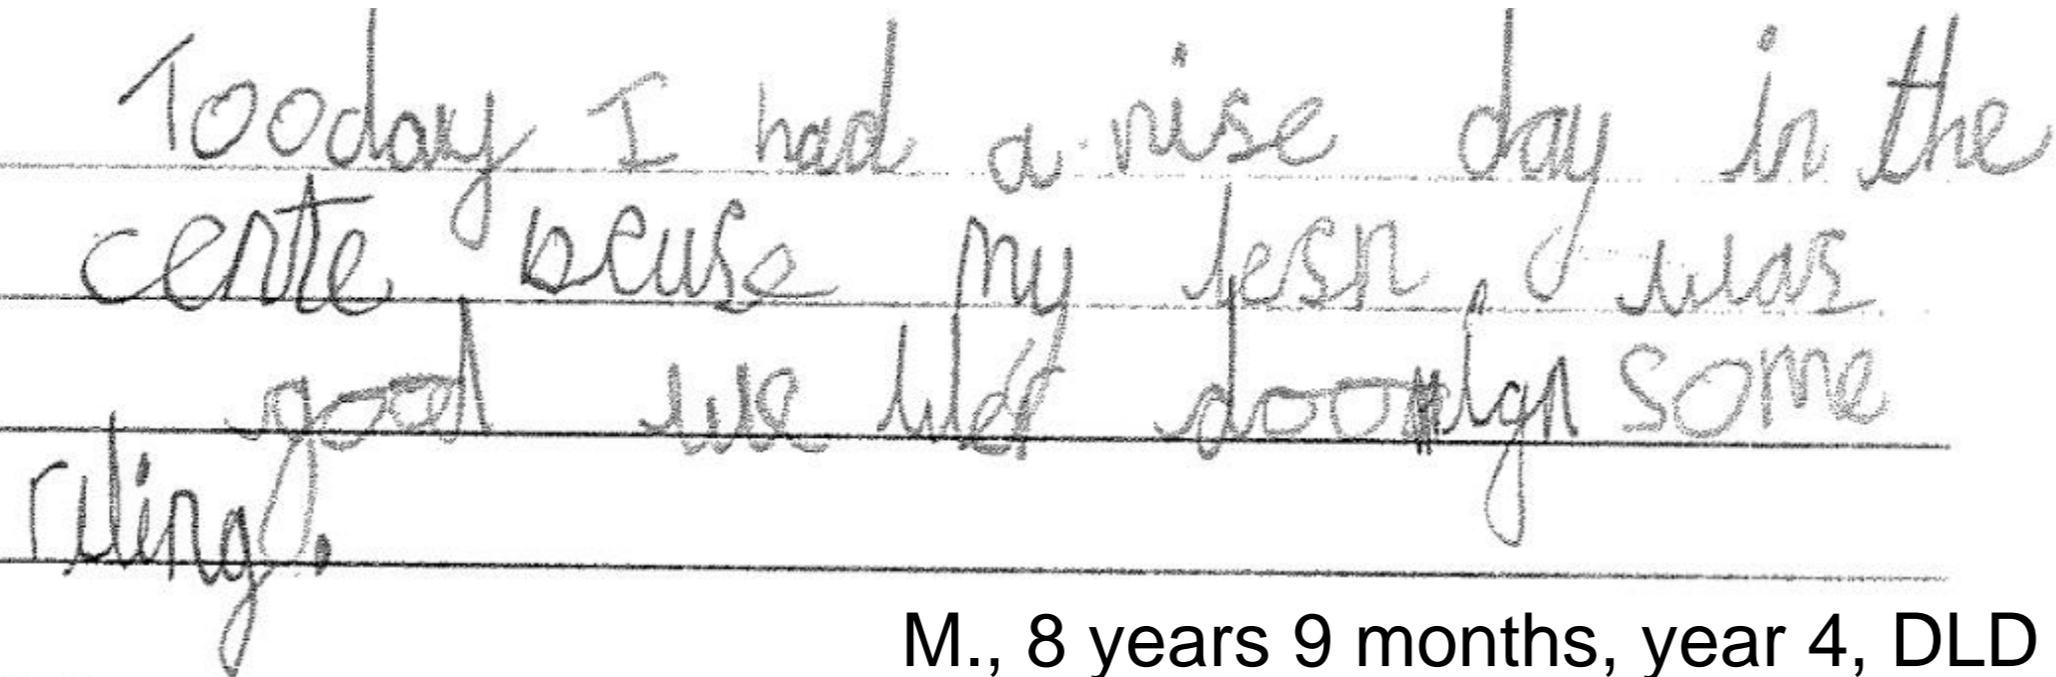 Tooday I had a nise day in the
cente beuse my lesn was
good we wer doonign some
riting.
M., 8 years 9 months, year 4, DLD